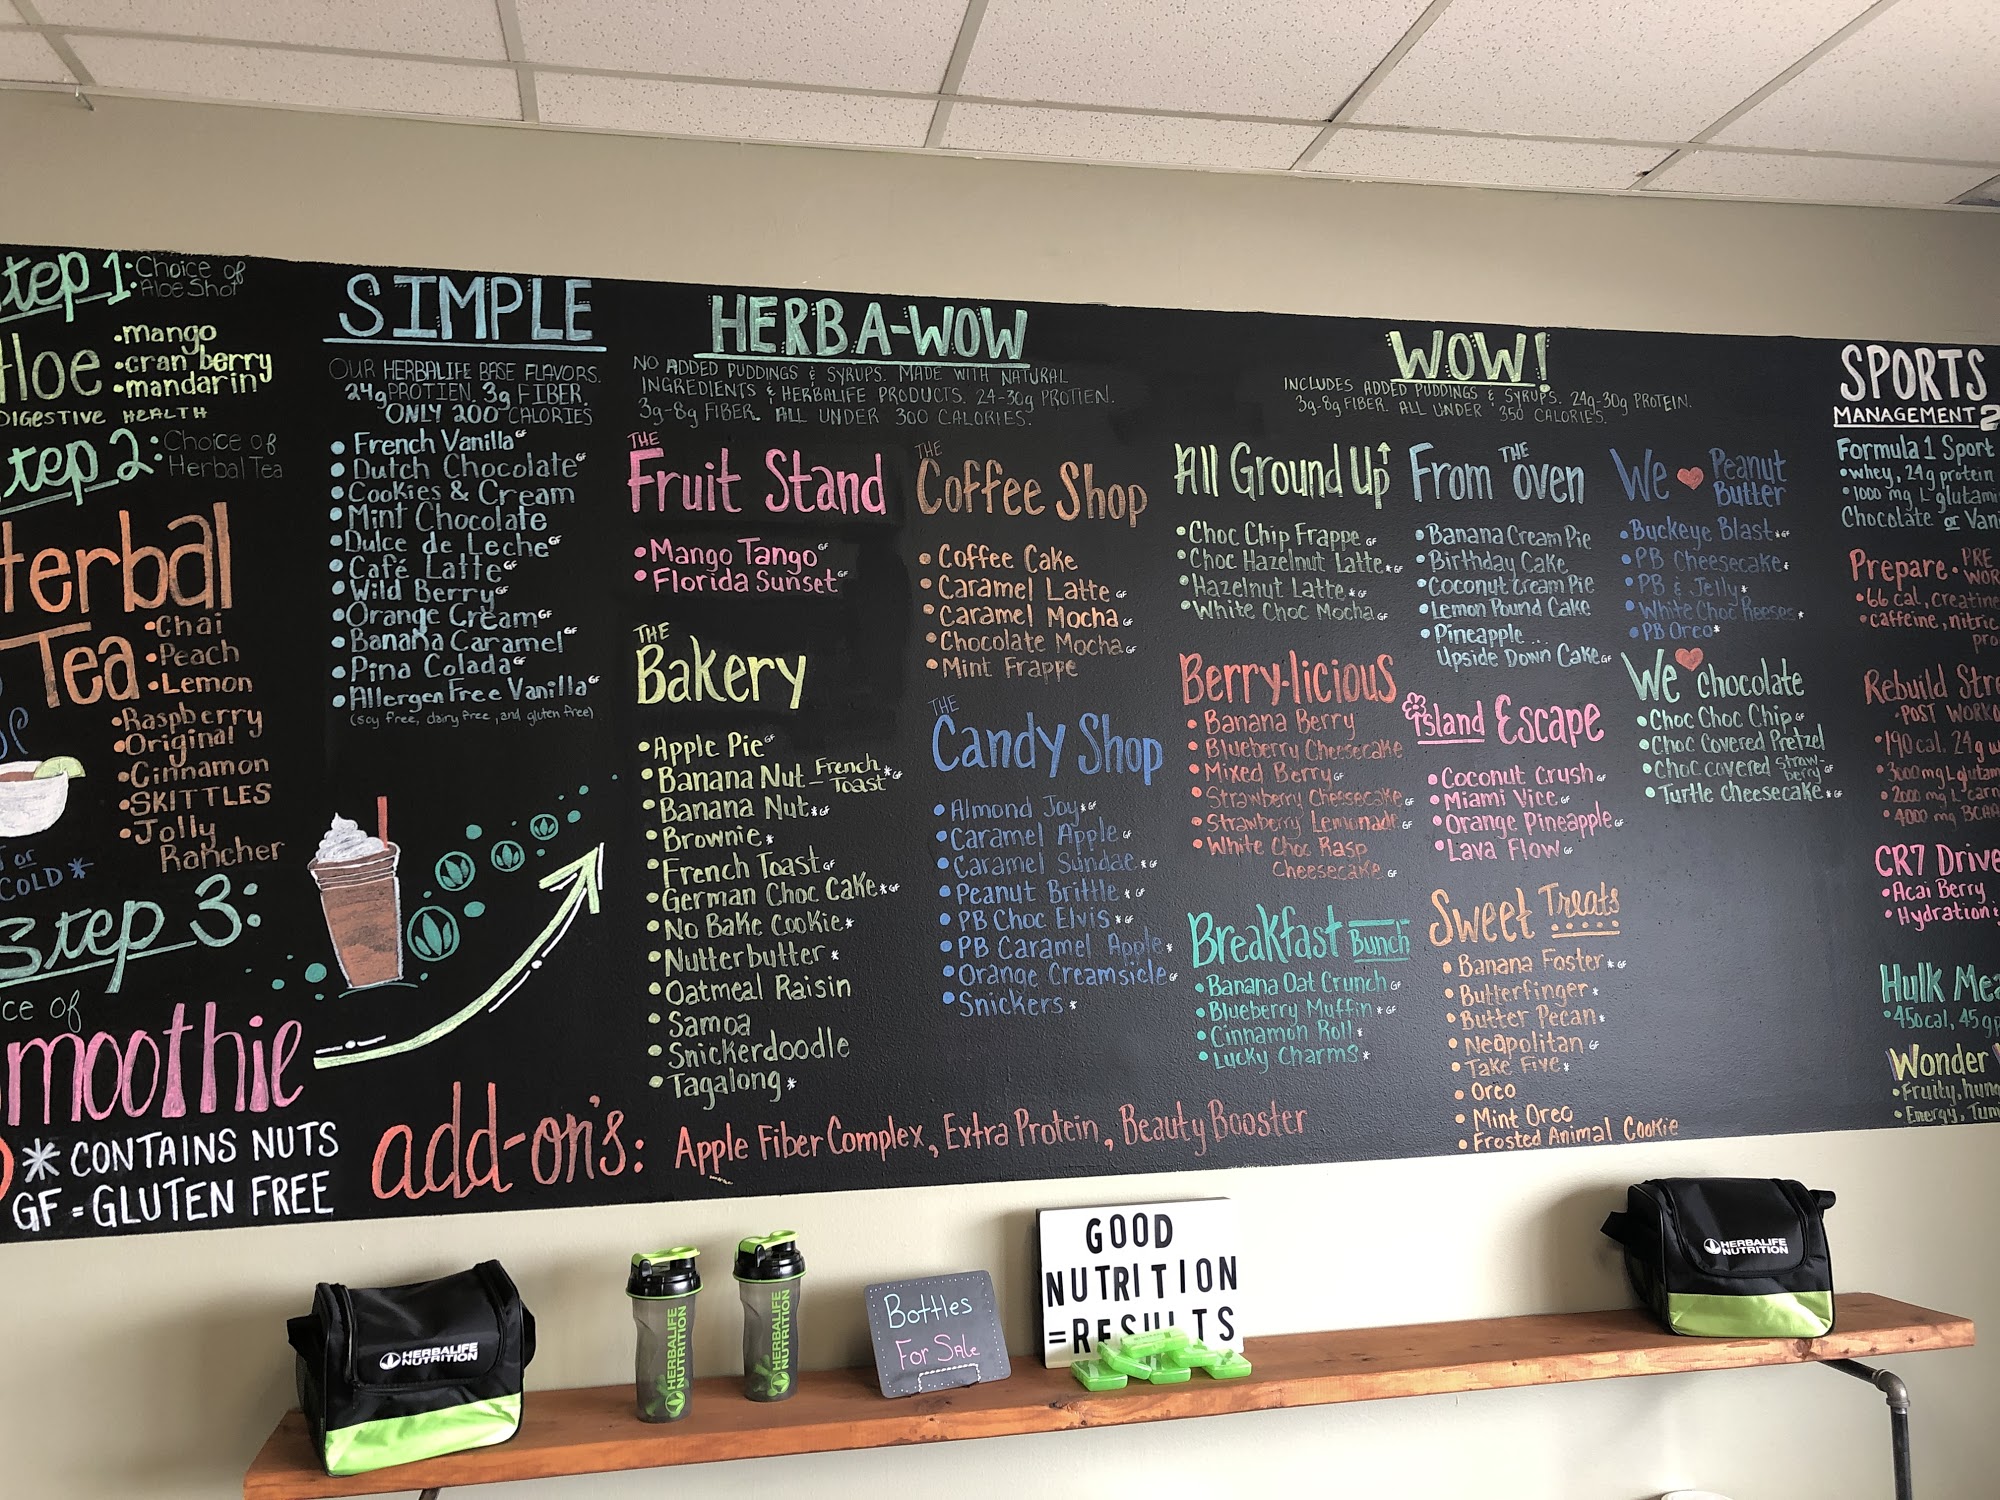 Step 1: Choice of
Aloe Shot
Aloe
•mango
•cranberry
•mandarin
DIGESTIVE HEALTH
Step 2: Choice of
Herbal Tea
Herbal
Tea
•Chai
•Peach
•Lemon
•Raspberry
•Original
•Cinnamon
•SKITTLES
•Jolly
Rancher
or
COLD*
Step 3:
ce of
moothie
* CONTAINS NUTS
GF = GLUTEN FREE
SIMPLE
OUR HERBALIFE BASE FLAVORS.
24g PROTIEN. 3g FIBER.
ONLY 200 CALORIES
• French Vanilla GF
• Dutch Chocolate GF
• Cookies & Cream
• Mint Chocolate
• Dulce de Leche GF
• Café Latte GF
• Wild Berry GF
• Orange Cream GF
• Banana Caramel GF
• Pina Colada GF
• Allergen Free Vanilla GF
(soy free, dairy free, and gluten free)
HERBA-WOW
NO ADDED PUDDINGS & SYRUPS. MADE WITH NATURAL
INGREDIENTS & HERBALIFE PRODUCTS. 24-30g PROTIEN.
3g-8g FIBER. ALL UNDER 300 CALORIES.
THE
Fruit Stand
• Mango Tango GF
• Florida Sunset GF
THE
Bakery
• Apple Pie GF
• Banana Nut - French
Toast * GF
• Banana Nut * GF
• Brownie *
• French Toast GF
• German Choc Cake * GF
• No Bake Cookie *
• Nutterbutter *
• Oatmeal Raisin
• Samoa
• Snickerdoodle
• Tagalong *
THE
Coffee Shop
• Coffee Cake
• Caramel Latte GF
• Caramel Mocha GF
• Chocolate Mocha GF
• Mint Frappe
THE
Candy Shop
• Almond Joy * GF
• Caramel Apple GF
• Caramel Sundae * GF
• Peanut Brittle * GF
• PB Choc Elvis * GF
• PB Caramel Apple *
• Orange Creamsicle GF
• Snickers *
WOW!
INCLUDES ADDED PUDDINGS & SYRUPS. 24g-30g PROTEIN.
3g-8g FIBER. ALL UNDER 350 CALORIES.
All Ground Up
• Choc Chip Frappe GF
• Choc Hazelnut Latte * GF
• Hazelnut Latte * GF
• White Choc Mocha GF
Berry-licious
• Banana Berry
• Blueberry Cheesecake
• Mixed Berry GF
• Strawberry Cheesecake GF
• Strawberry Lemonade GF
• White Choc Rasp
Cheesecake GF
Breakfast Bunch
• Banana Oat Crunch GF
• Blueberry Muffin * GF
• Cinnamon Roll *
• Lucky Charms *
From THE oven
• Banana Cream Pie
• Birthday Cake
• Coconut Cream Pie
• Lemon Pound Cake
• Pineapple...
Upside Down Cake GF
island Escape
• Coconut Crush GF
• Miami Vice GF
• Orange Pineapple GF
• Lava Flow GF
Sweet Treats
• Banana Foster * GF
• Butterfinger *
• Butter Pecan *
• Neapolitan GF
• Take Five *
• Oreo
• Mint Oreo
• Frosted Animal Cookie
We ♥ Peanut
Butter
• Buckeye Blast * GF
• PB Cheesecake *
• PB & Jelly *
• White Choc Reeses *
• PB Oreo *
We ♥ chocolate
• Choc Choc Chip GF
• Choc Covered Pretzel
• Choc covered straw-
berry GF
• Turtle Cheesecake * GF
SPORTS
MANAGEMENT 2
Formula 1 Sport
• whey, 24g protein
• 1000 mg L glutami
Chocolate or Vani
Prepare • PRE
WOR
• 66 cal, creatine
• caffeine, nitric
pro
Rebuild Stre
• POST WORKO
• 190 cal. 24g w
• 3000 mg L glutam
• 2000 mg L carn
• 4000 mg BCAA
CR7 Drive
• Acai Berry
• Hydration
Hulk Mea
• 450 cal, 45g p
Wonder
• Fruity, hun
• Energy, Tum
add-on's: Apple Fiber Complex, Extra Protein, Beauty Booster
HERBALIFE
NUTRITION
HERBALIFE
NUTRITION
HERBALIFE
NUTRITION
Bottles
For Sale
GOOD
NUTRITION
=RESULTS
HERBALIFE
NUTRITION